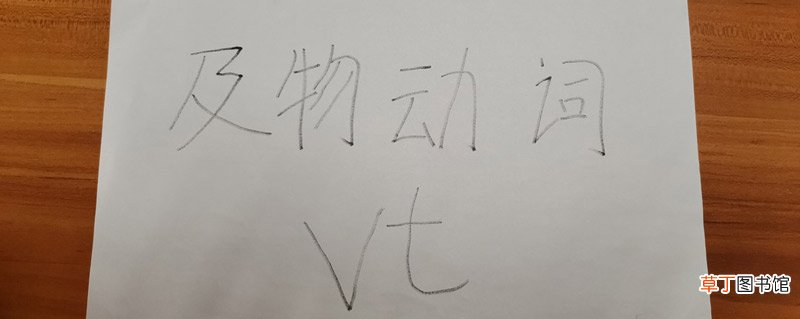 及物动词
Vt
草丁图书馆